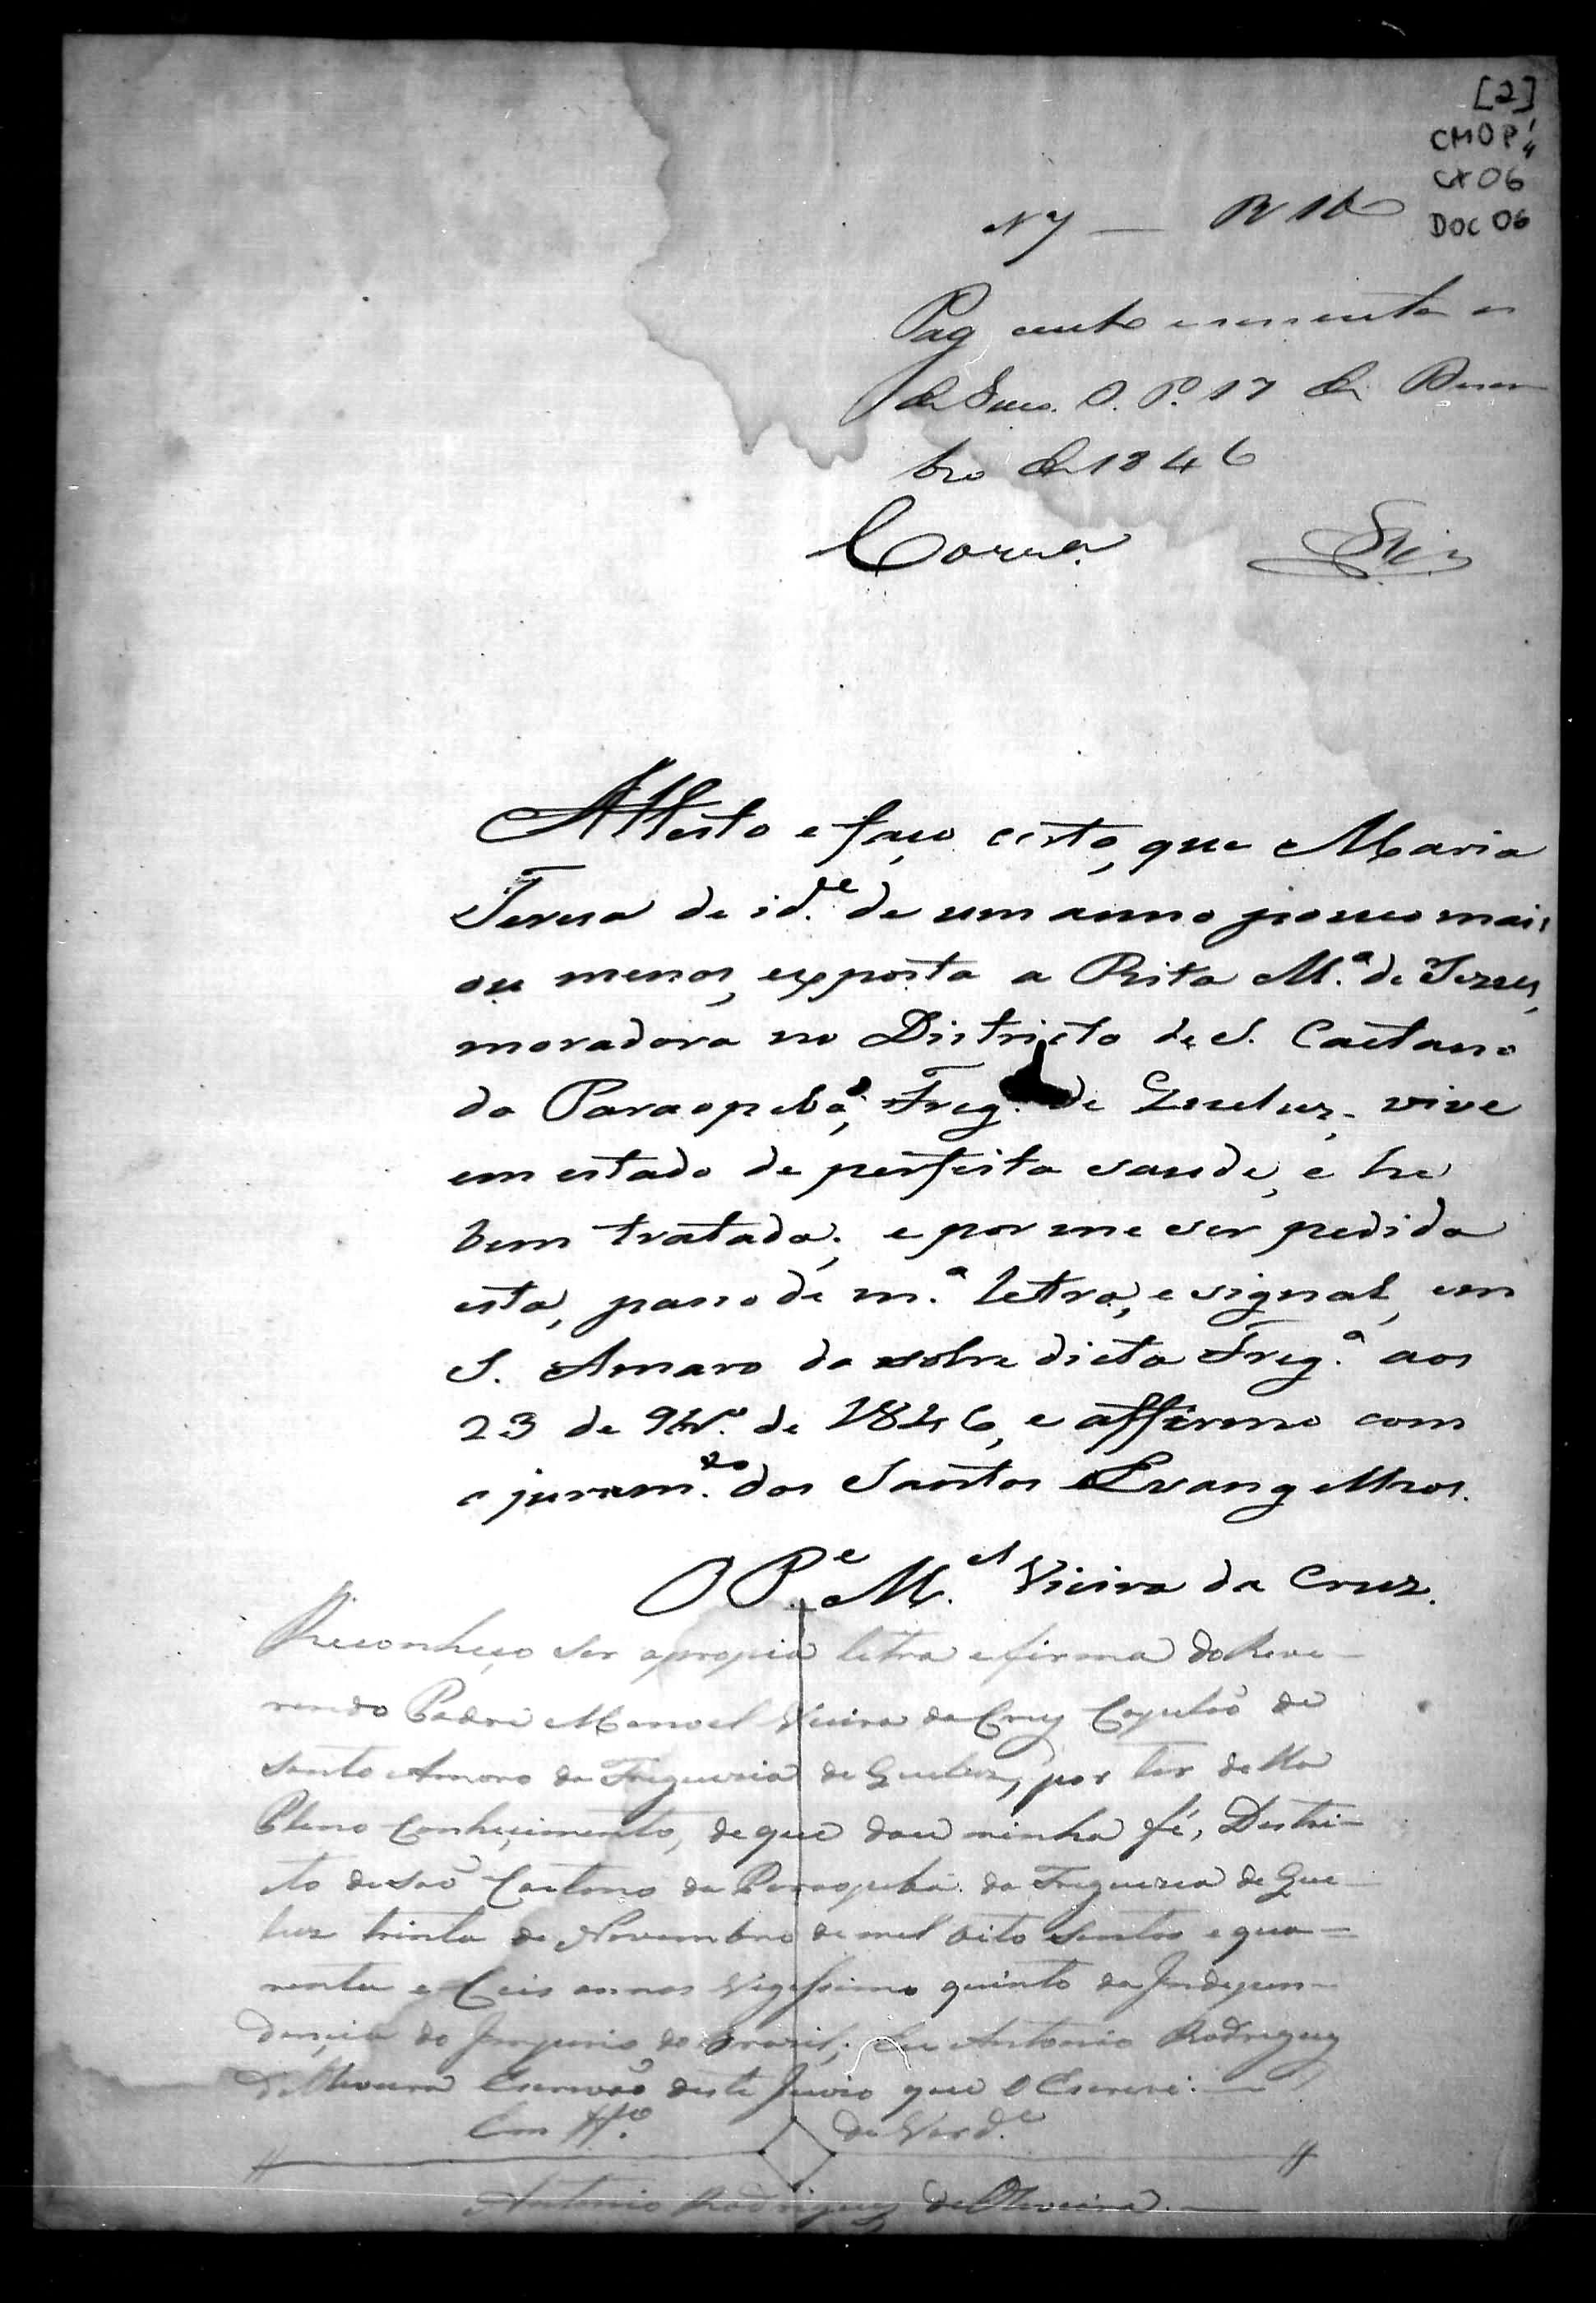 [2]
CMOP
CX 06
DOC 06
N 7 —
Pag
17 de
bro de 1846
Correa
Attesto e faço certo, que Maria
Teresa de id.e de um anno pouco mais
ou menos, exposta a Rita M.a de Jezus,
moradora no Districto de S. Caetano
da Paraopeba, Freg. de Queluz, vive
em estado de perfeita saude, e he
bem tratada; e por me ser pedida
esta, passo de m.a letra, e signal, em
S. Amaro da sobre dicta Freg.a aos
23 de 9br.o de 1846, e affirmo com
o juram.to dos Santos Evangelhos.
O P.e M.el Vieira da Cruz.
Reconheço ser a propia letra e firma do Reve-
rendo Padre Manoel Vieira da Cruz Capelão de
Santo Amaro da Freguezia de Queluz, por ter della
Pleno Conhecimento, de que dou minha fé, Destri-
to de São Caetano da Paraopeba da Freguezia de Que-
luz trinta de Novembro de mil oito sentos e qua-
renta e Ceis annos Vigessimo quinto da Indepen-
dencia do Imperio do Brazil; Eu Antonio Rodrigues
de Oliveira Escrivão deste Juizo que o Escrevi. —
Em tt.o de Verd.e
Antonio Rodrigues de Oliveira. —